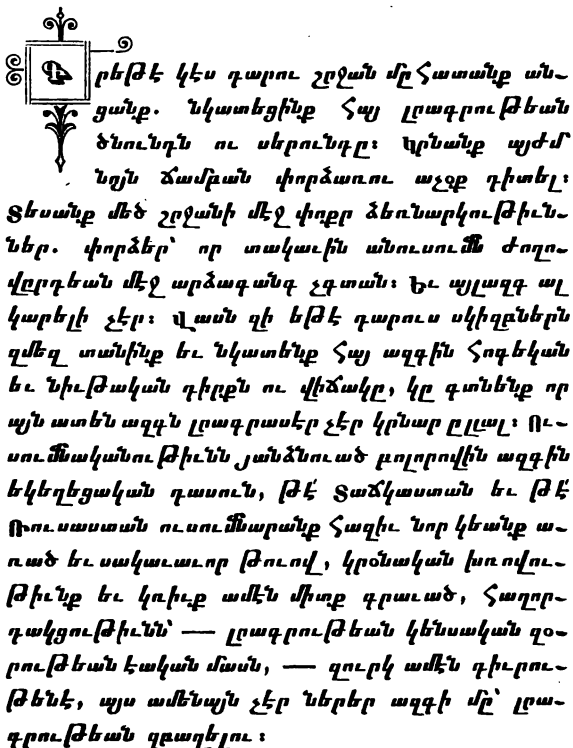 Գրեթէ կէս դարու շրջան մը հատանք ան-
ցանք. նկատեցինք հայ լրագրութեան
ծնունդն ու սերունդը։ Կրնանք այժմ
նոյն ճամբան փորձառու աչօք դիտել։
Տեսանք մեծ շրջանի մէջ փոքր ձեռնարկութիւն-
ներ. փորձեր՝ որ տակաւին անուսումն ժողո-
վըրդեան մէջ արձագանգ չգտան։ Եւ այլազգ ալ
կարելի չէր։ Վասն զի եթէ դարուս սկիզբներն
զմեզ տանինք եւ նկատենք հայ ազգին հոգեկան
եւ նիւթական դիրքն ու վիճակը, կը գտնենք որ
այն ատեն ազգն լրագրասէր չէր կրնար ըլլալ։ Ու-
սումնականութիւնն յանձնուած բոլորովին ազգին
եկեղեցական դասուն, թէ՛ Տաճկաստան եւ թէ՛
Ռուսաստան ուսումնարանք հազիւ նոր կեանք ա-
ռած եւ սակաւաւոր թուով, կրօնական խռովու-
թիւնք եւ կռիւք ամէն միտք գրաւած, հաղոր-
դակցութիւնն՝ — լրագրութեան կենսական զօ-
րութեան էական մասն, — զուրկ ամէն դիւրու-
թենէ, այս ամենայն չէր ներեր ազգի մը՝ լրա-
գրութեան զբաղելու։